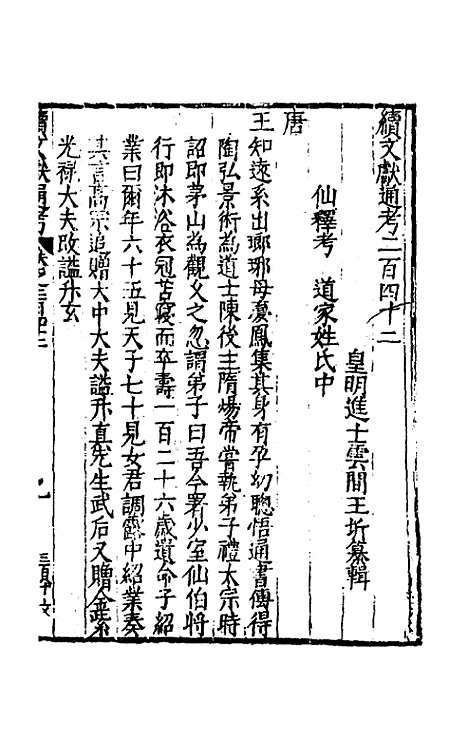 續文獻通考二百四十二
皇明進士雲間王圻纂輯
仙釋考 道家姓氏中
唐
王知遠系出瑯琊母夢鳳集其身有孕幼聰悟通書傳得
陶弘景術為道士陳後主隋煬帝嘗執弟子禮太宗時
詔即茅山為觀又之忽謂弟子曰吾今署少室仙伯將
行即沐浴衣冠若寢而卒壽一百二十六歲遺命子紹
業曰爾年六十五見天子七十見女君調露中紹業奏
其言高宗追贈大中大夫諡升真先生武后又贈金紫
光祿大夫改諡升玄
續文獻通考